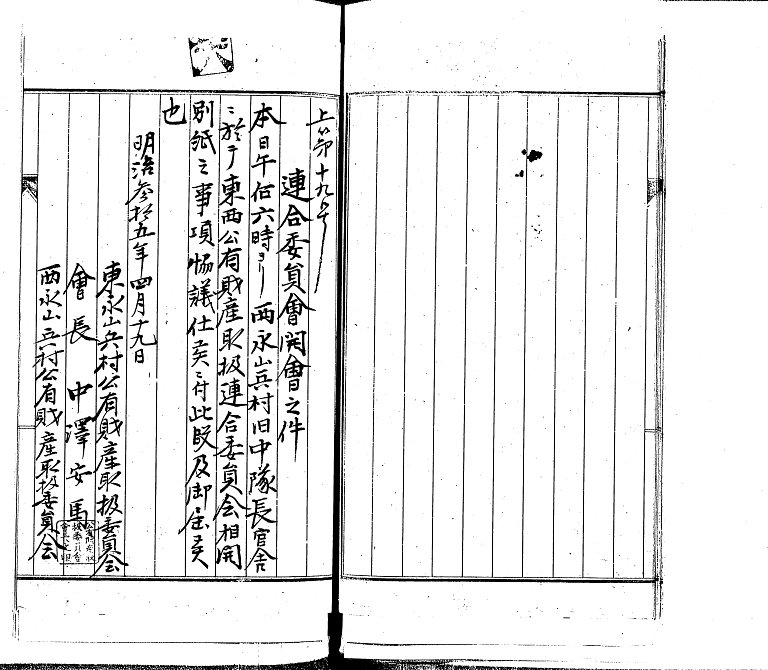 上第十九号
連合委員會開會之件
本日午后六時ヨリ西永山兵村旧中隊長官舎
ニ於テ東西公有財産取扱連合委員会相開
別紙之事項協議仕候ニ付此段及御届候
也
明治参拾五年四月十九日
東永山兵村公有財産取扱委員会
會長 中澤安馬
西永山兵村公有財産取扱委員会